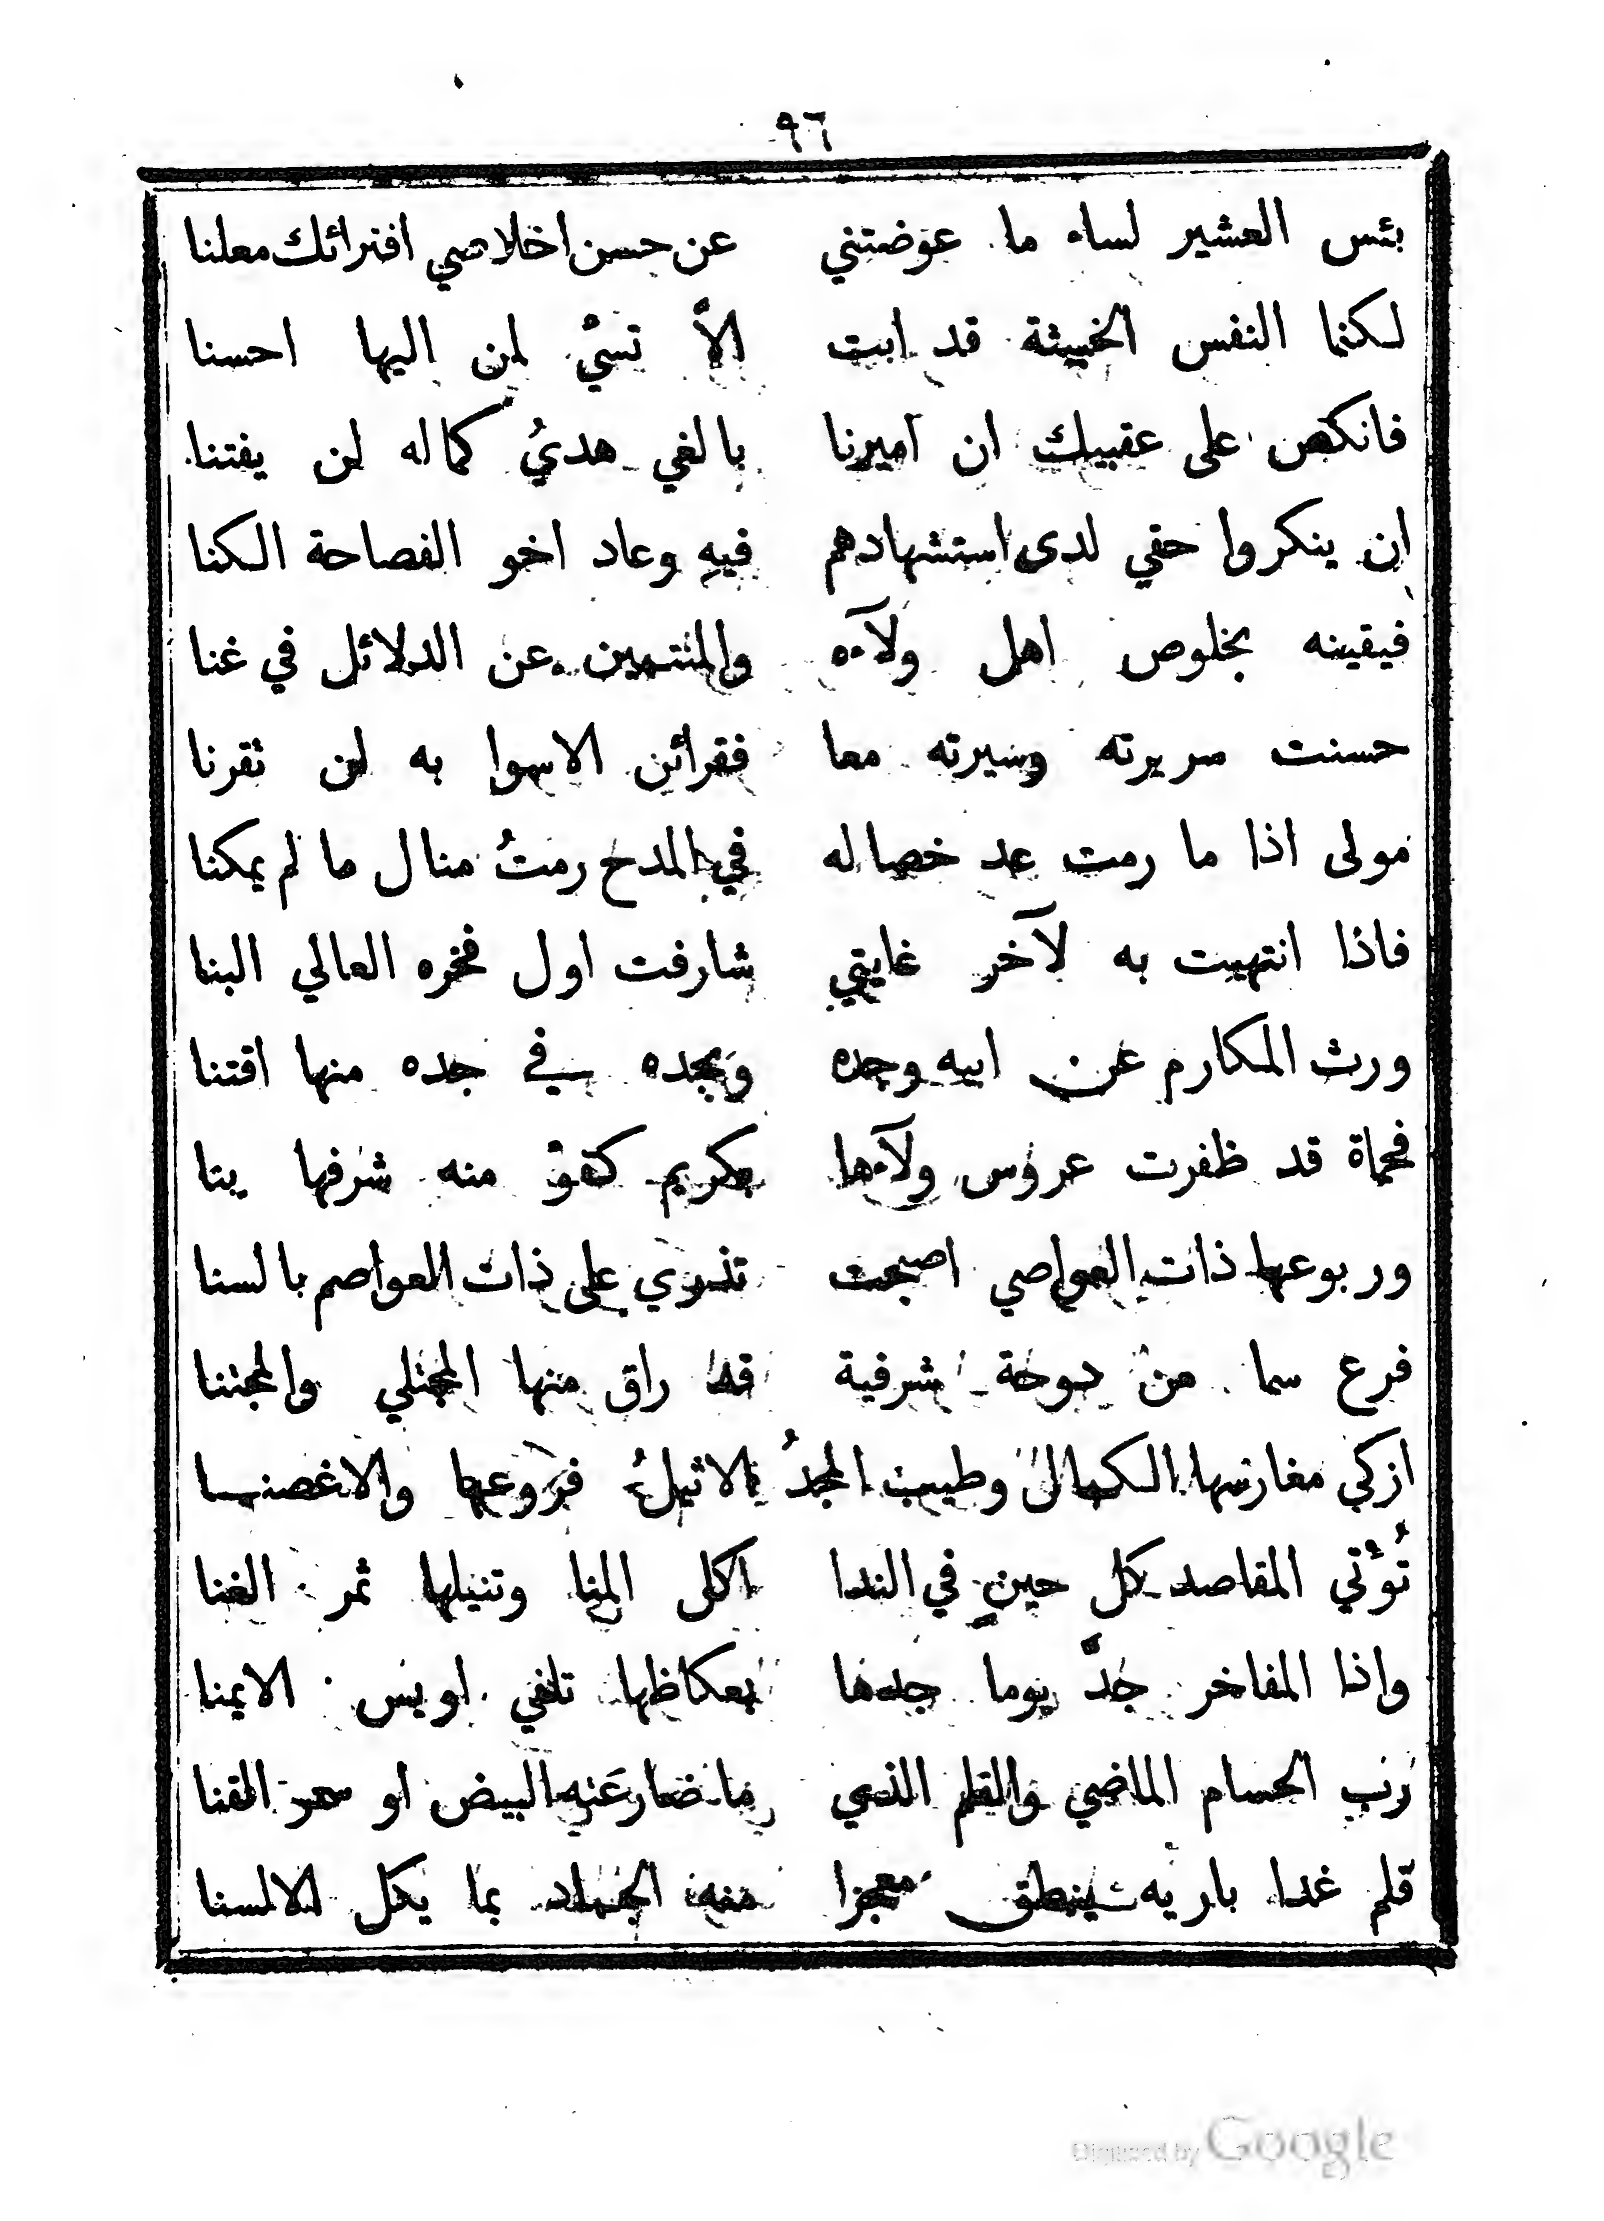 ٩٦
بئس العشير لساء ما عوضتني عن حسن اخلاصي افترائك معلنا
لكنما النفس الخبيثة قد ابت الاّ تسيّ لمن اليها احسنا
فانكص على عقبيك ان اميرنا بالغي هديُ كماله لن يفتنا
ان ينكروا حقي لدى استشهادهم فيهِ وعاد اخو الفصاحة الكنا
فيقينه بخلوص اهل ولآءه والمنتمين عن الدلائل في غنا
حسنت سريرته وسيرته معا فقرائن الاسوا به لن تقرنا
مولى اذا ما رمت عد خصاله في المدح رمتُ منال ما لم يمكنا
فاذا انتهيت به لآخر غايتي شارفت اول فخره العالي البنا
ورث المكارم عن ابيه وجده وبجده في جده منها اقتنا
فحماة قد ظفرت عروس ولآءها بكريم كفوّ منه شرفها بنا
وربوعها ذات العواصي اصبحت تذري على ذات العواصم بالسنا
فرع سما من دوحة شرفية قد راق منها المجتلي والمجتنا
ازكي مغارسها الكمال وطيب المجدُ الاثيلُ فروعها والاغصنا
تُوتي المقاصد كل حينٍ في الندا اكل المنا وتنيلها ثمر الغنا
واذا المفاخر جدَّ يوما جدها بعكاظها تلفي اويس الايمنا
رب الحسام الماضي والقلم الذي ما ضارعَنه البيض او سمر القنا
قلم غدا باريه ينطق معجزا منه الجماد بما يكل الالسنا
Digitized by Google